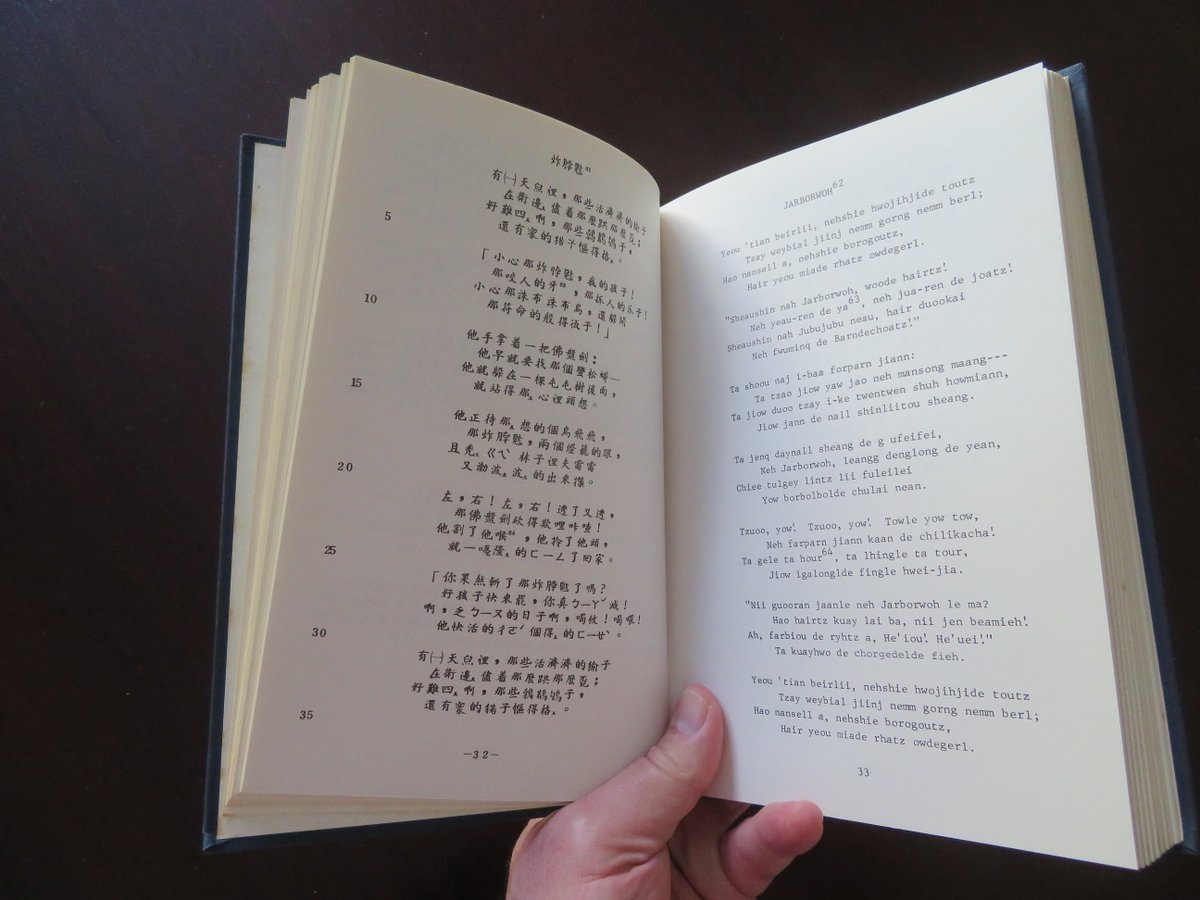 炸脖
有㈠天裡，那些活濟濟的子
在衛邊儘着那麼跌那麼；
5
好難四啊，那些鵓鴣鴇子，
還有家的豬子慪得格。
「小心那炸脖，我的孩子！
那咬人的牙，那抓人的爪子！
10
小心那誅布誅布鳥，還躲開
那符命的般得子！」
他手拿着一把佛盤劍：
他早就要找那個蠻松蟒—
他就躲在一棵屯屯樹後面，
15
就站得那心裡頭想。
他正待那想的個鳥飛飛，
那炸脖，兩個燈籠的眼，
且禿ㄍㄟ林子裡夫雷雷
20
又渤波波的出來撵。
左，右！左，右！透了又透，
那佛盤劍砍得欺哩咔喳！
他割了他喉，他拎了他頭，
25
就一嘎隆的ㄈㄧㄥ了回家。
「你果然斬了那炸脖了嗎？
好孩子快來罷，你真ㄅㄧㄚˇ滅！
啊，乏ㄅㄧㄡ的日子啊，喝攸！喝喂！
30
他快活的ㄔㄛˊ個得的ㄈㄧㄝˋ。
有㈠天裡，那些活濟濟的子
在衛邊儘着那麼跌那麼；
好難四啊，那些鵓鴣鴇子，
35
還有家的豬子慪得格。
—32—
JARBORWOH62
Yeou 'tian beirlii, nehshie hwojihjide toutz
Tzay weybial jiinj nemm gorng nemm berl;
Hao nansell a, nehshie borogoutz,
Hair yeou miade rhatz owdegerl.
"Sheaushin nah Jarborwoh, woode hairtz!
Neh yeau-ren de ya63, neh jua-ren de joatz!
Sheaushin nah Jubujubu neau, hair duookai
Neh fwuminq de Barndechoatz!"
Ta shoou naj i-baa forparn jiann:
Ta tzao jiow yaw jao neh mansong maang---
Ta jiow duoo tzay i-ke twentwen shuh howmiann,
Jiow jann de nall shinliitou sheang.
Ta jenq daynall sheang de g ufeifei,
Neh Jarborwoh, leangg denglong de yean,
Chiee tulgey lintz lii fuleilei
Yow borbolbolde chulai nean.
Tzuoo, yow! Tzuoo, yow! Towle yow tow,
Neh farparn jiann kaan de chilikacha!
Ta gele ta hour64, ta lhingle ta tour,
Jiow igalonglde fingle hwei-jia.
"Nii guooran jaanle neh Jarborwoh le ma?
Hao hairtz kuay lai ba, nii jen beamieh!
Ah, farbiou de ryhtz a, He'iou! He'uei!"
Ta kuayhwo de chorgedelde fieh.
Yeou 'tian beirlii, nehshie hwojihjide toutz
Tzay weybial jiinj nemm gorng nemm berl;
Hao nansell a, nehshie borogoutz,
Hair yeou miade rhatz owdegerl.
33